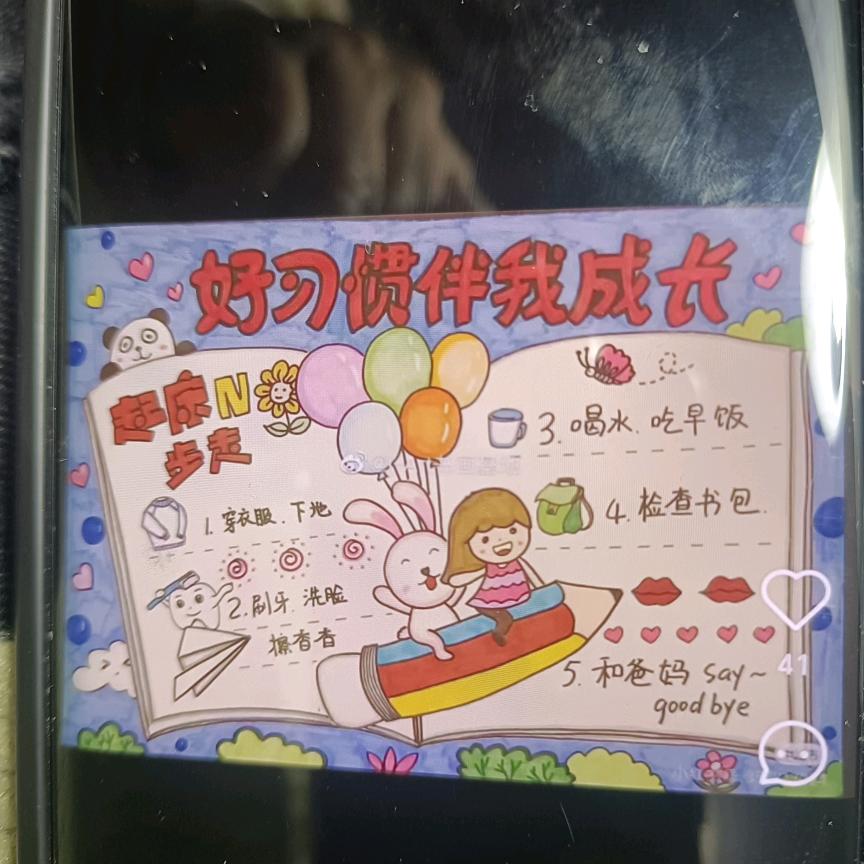 好习惯伴我成长
起床N
步走
1. 穿衣服.下地
2. 刷牙. 洗脸
擦香香
3. 喝水. 吃早饭
4. 检查书包.
5. 和爸妈 say~
good bye
41